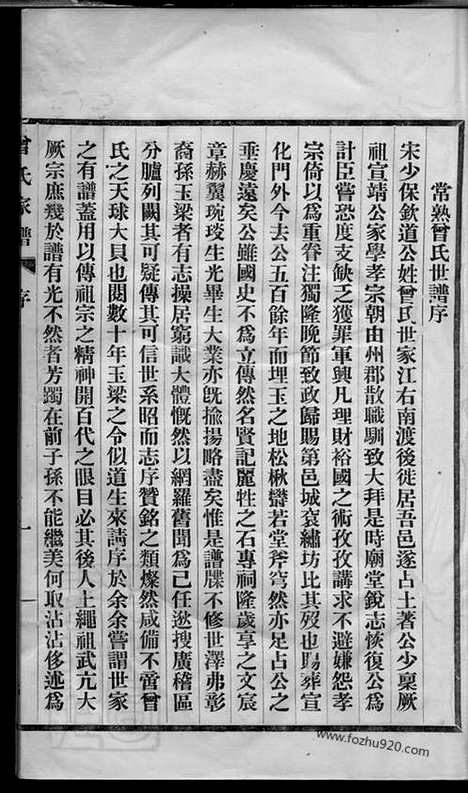 常熟曾氏世譜序
宋少保欽道公姓曾氏世家江右南渡後徙居吾邑遂占土著公少稟厥
祖宣靖公家學孝宗朝由州郡散職馴致大拜是時廟堂銳志恢復公為
計臣嘗恐度支缺乏獲罪軍興凡理財裕國之術孜孜講求不避嫌怨孝
宗倚以為重眷注獨隆晚節致政歸賜第邑城袞繡坊比其歿也賜葬宣
化門外今去公五百餘年而埋玉之地松楸鬱若堂斧穹然亦足占公之
垂慶遠矣公雖國史不為立傳然名賢記麗牲之石專祠隆歲享之文宸
章赫翼琬琰生光畢生大業亦旣揄揚略盡矣惟是譜牒不修世澤弗彰
裔孫玉梁者有志操居窮識大體慨然以網羅舊聞為己任遂搜廣稽區
分臚列闕其可疑傳其可信世系昭而志序贊銘之類燦然咸備不啻曾
氏之天球大貝也閱數十年玉梁之令似道生來請序於余余嘗謂世家
之有譜蓋用以傳祖宗之精神開百代之眼目必其後人上繩祖武亢大
厥宗庶幾於譜有光不然者芳躅在前子孫不能繼美何取沾沾侈述為
曾氏家譜
序
一
www.fozhu920.com